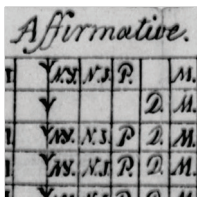 Affirmative.
N.Y. N.J. P. M.
D. M.
N.Y. N.J. P D. M.
N.Y. N.J. P. D. M.